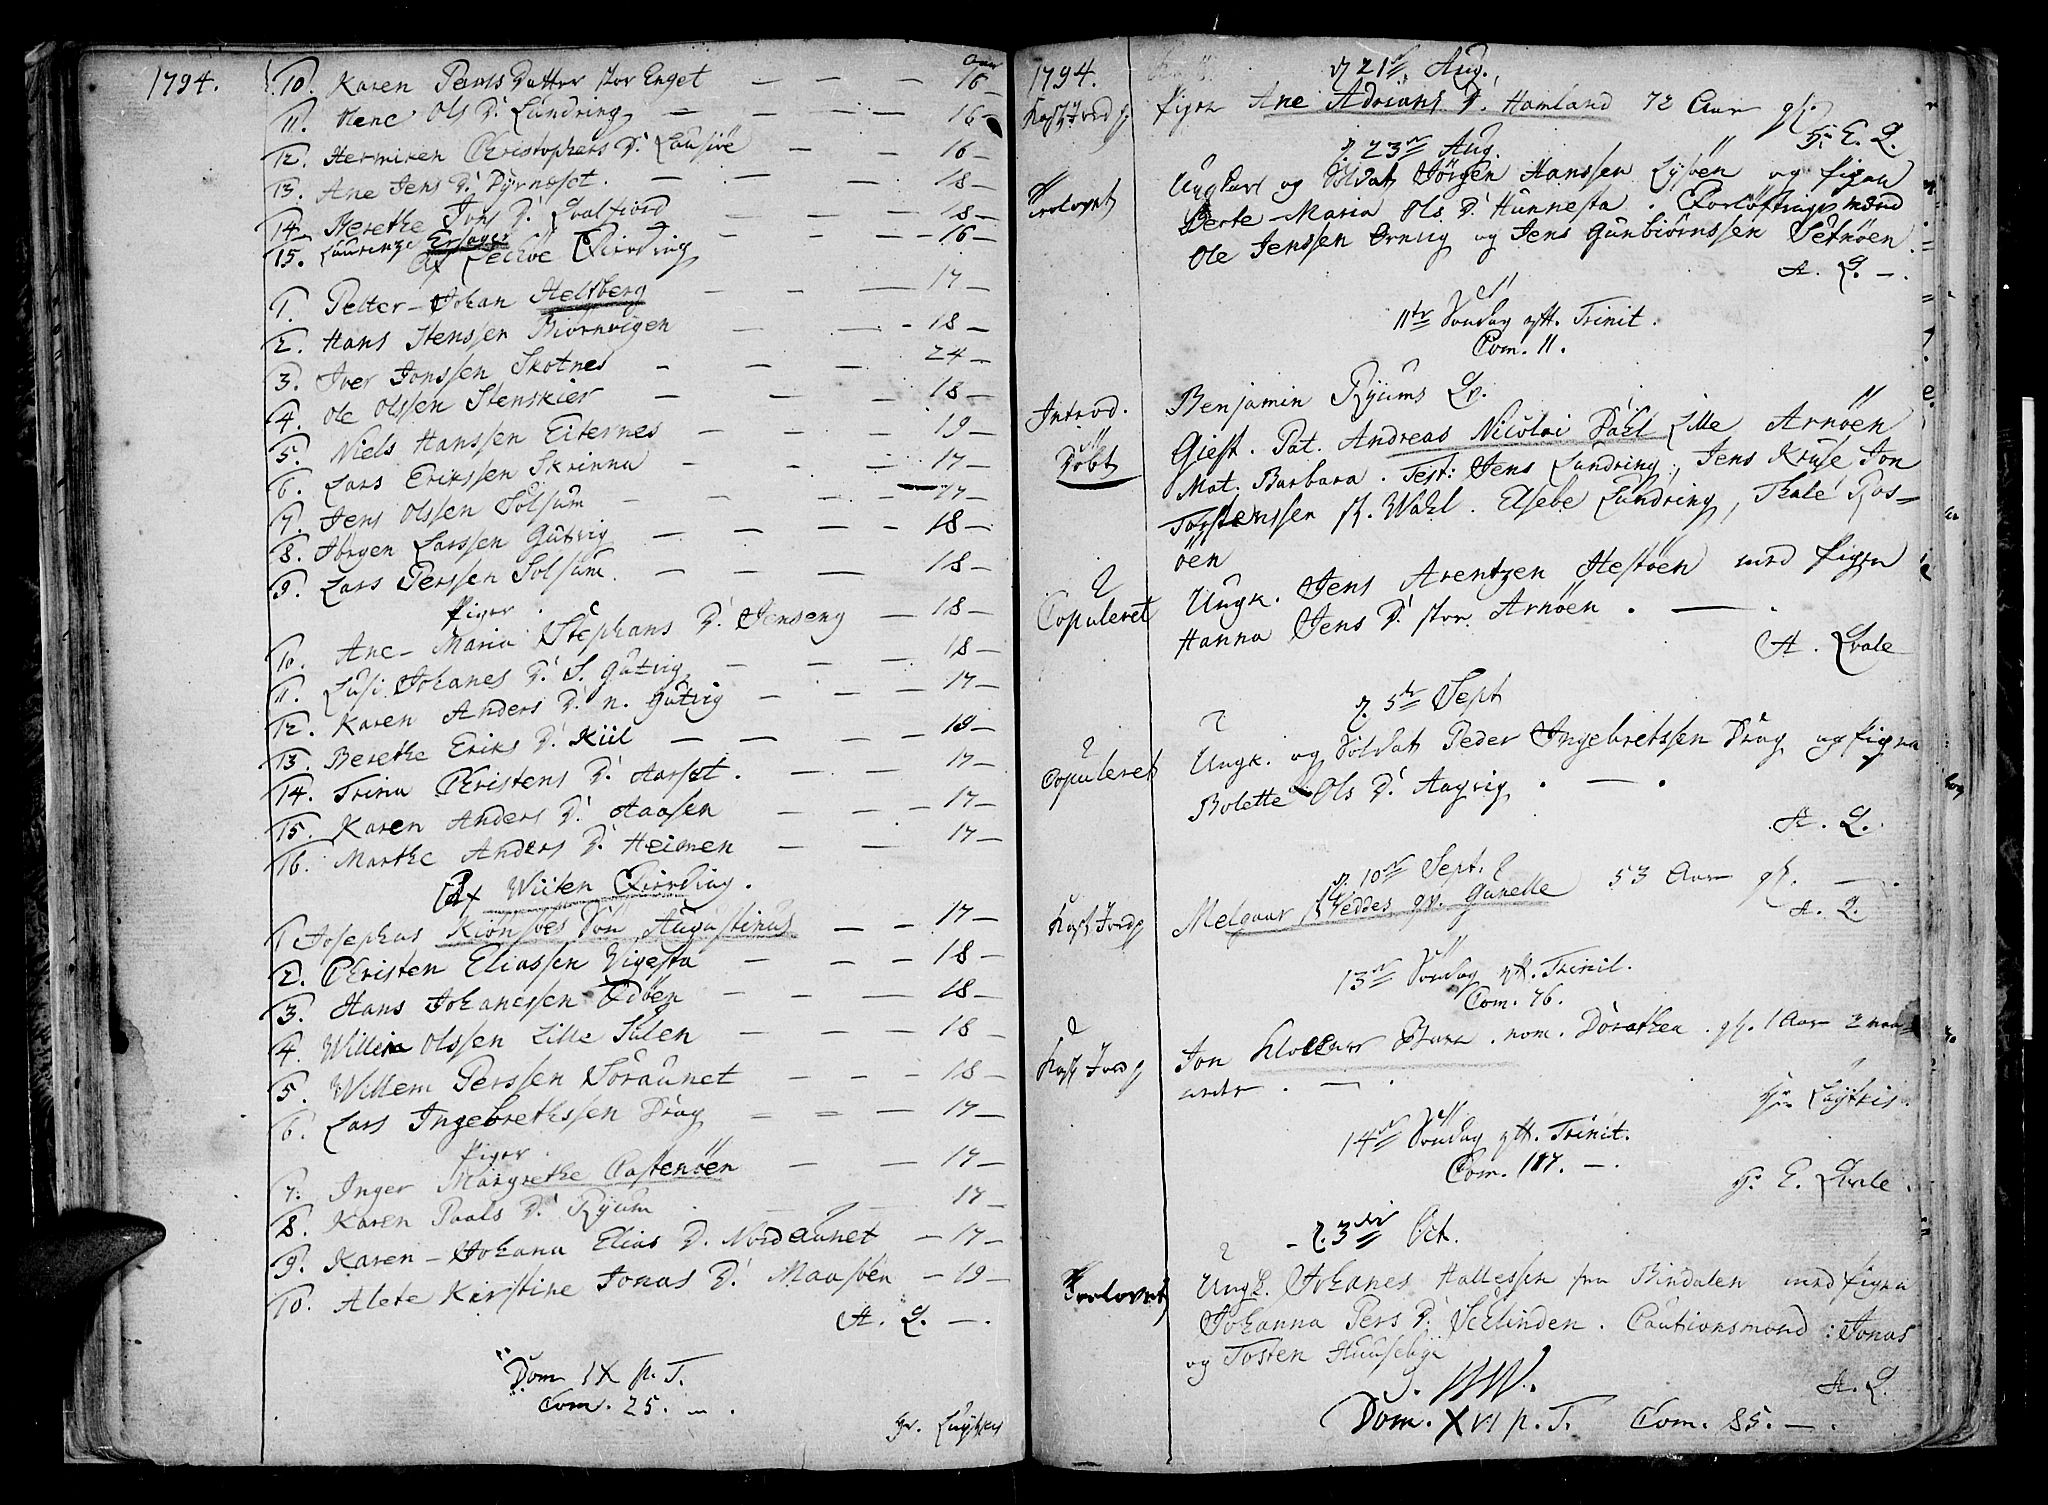 1794.
Aar
10. Karen Pauls Datter stor Enget — — — 16 —
11. Ols D. Lundring — — — 16 —
12. Christophers D. — — — 16 —
13. Ane Jens D. Dyrnesset. — — — 18 —
14. Berethe Jons D. Qvalfiord — — — 18 —
15. — — — 16 —
Af Fierding
1. Petter-Johan Heltberg — — — 17 —
2. Hans Stenssen Biornvigen — — — 18 —
3. Iver Jonssen Skotnes — — — 24 —
4. Ole Olssen Stenskier — — — 18 —
5. Niels Hanssen Eiternes — — — 19 —
6. Lars Erikssen Skrinna — — — 17 —
7. Jens Olssen Solsum — — — 17 —
8. Jörgen Larssen Gutvig — — — 18 —
9. Lars Perssen Solsum. — — — 18 —
Piger.
10. Ane-Maria Stephans D. Jenseng — 18 —
11. Lusi Johanes D. S. Gutvig — — — 18 —
12. Karen Anders D. n. Gutvig — — — 17 —
13. Berethe Eriks D. Kiil — — — 18 —
14. Trina Christens D. Aarset. — — — 17 —
15. Karen Anders D. Aaasen — — — 17 —
16. Marthe Anders D. Heimen — — — 17 —
Af Wiiten Fierding.
1 Josephus Augustinus — — 17 —
2. Christen Eliassen Vigesta — — — 18 —
3. Hans Johanessen — — — 18 —
4. Willem Olssen Lille Sulen — — — 18 —
5. Willem Perssen Soraunet — — — 18 —
6. Lars Ingebrethssen Drag — — — 17 —
Piger.
7. Inger Margrethe Castenöen — — — 17 —
8. Karen Paals D. Ryum — — 17 —
9. Karen-Johana Elias D. Nordaunet — 17 —
10. Alete Kirstine Jonas D. Maasöen — 19 —
A. Q. —.
Dom IX p. T.
Com. 25. —.
Hr. Luytkis
1794.
d 21de Aug.
Pigen Ane Adrians D. Hamland 72 Aar gl.
Hr. E. Q.
d. 23de Aug.
Trolovet
Ungkarl og Soldat Jörgen Hanssen Lysöen og Pigen
Berte-Maria Ols D. Hunnesta. Forlöftningsmænd
Ole Jenssen Ornvig og Jens Gunbiörnssen Setnöen.
A. Q. —.
11te Söndag eft. Trinit.
Com. 11.
Introd. Benjamin Ryums Qv.
Döbt
Giest. Pat. Andreas Nicolai Dahl Lille Arnöen
Mat. Barbara. Test: Jens Lundring, Jens Kruse Jon
Torstenssen fr. Wahl. Elsebe Lundring, Thale Ros-
öen
Copuleret
Ungk. Jens Arentzen Hestöen med Pigen
Hanna Jens D. stor. Arnöen. —.
A. Qvale
d. 5te Sept
Copuleret
Ungk. og Soldat Peder Ingebretssen Drag og Pigen
Bolette Ols D. Aagvig. —.
A. Q.
d. 10de Sept.
gv. Gunelle 53 Aar gl. —.
A. Q.
13de Söndag eft. Trinit.
Com. 76.
Jon Barn. nom. Dorothea. gl. 1 Aar 2 maa-
neder. —.
Hr. Luytkis.
14de Söndag eft. Trinit.
Com. 117. —.
Hr. E. Qvale.
- d. 3die Oct.
Trolovet
Ungk. Johanes Hallessen fra Bindalen med Pigen
Johanna Pers D. Terlinden. Cautionsmænd: Jonas
og Tosten
A. Q.
Dom. XVI p. T. Com. 85. —.